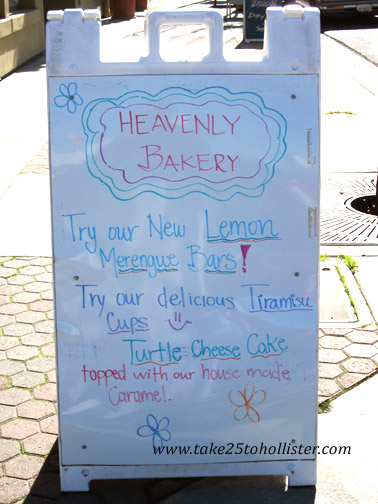 HEAVENLY
BAKERY
Try our New Lemon
Merengue Bars!
Try our delicious Tiramisu
Cups
Turtle Cheese Cake
topped with our house made
Caramel.
www.take25tohollister.com